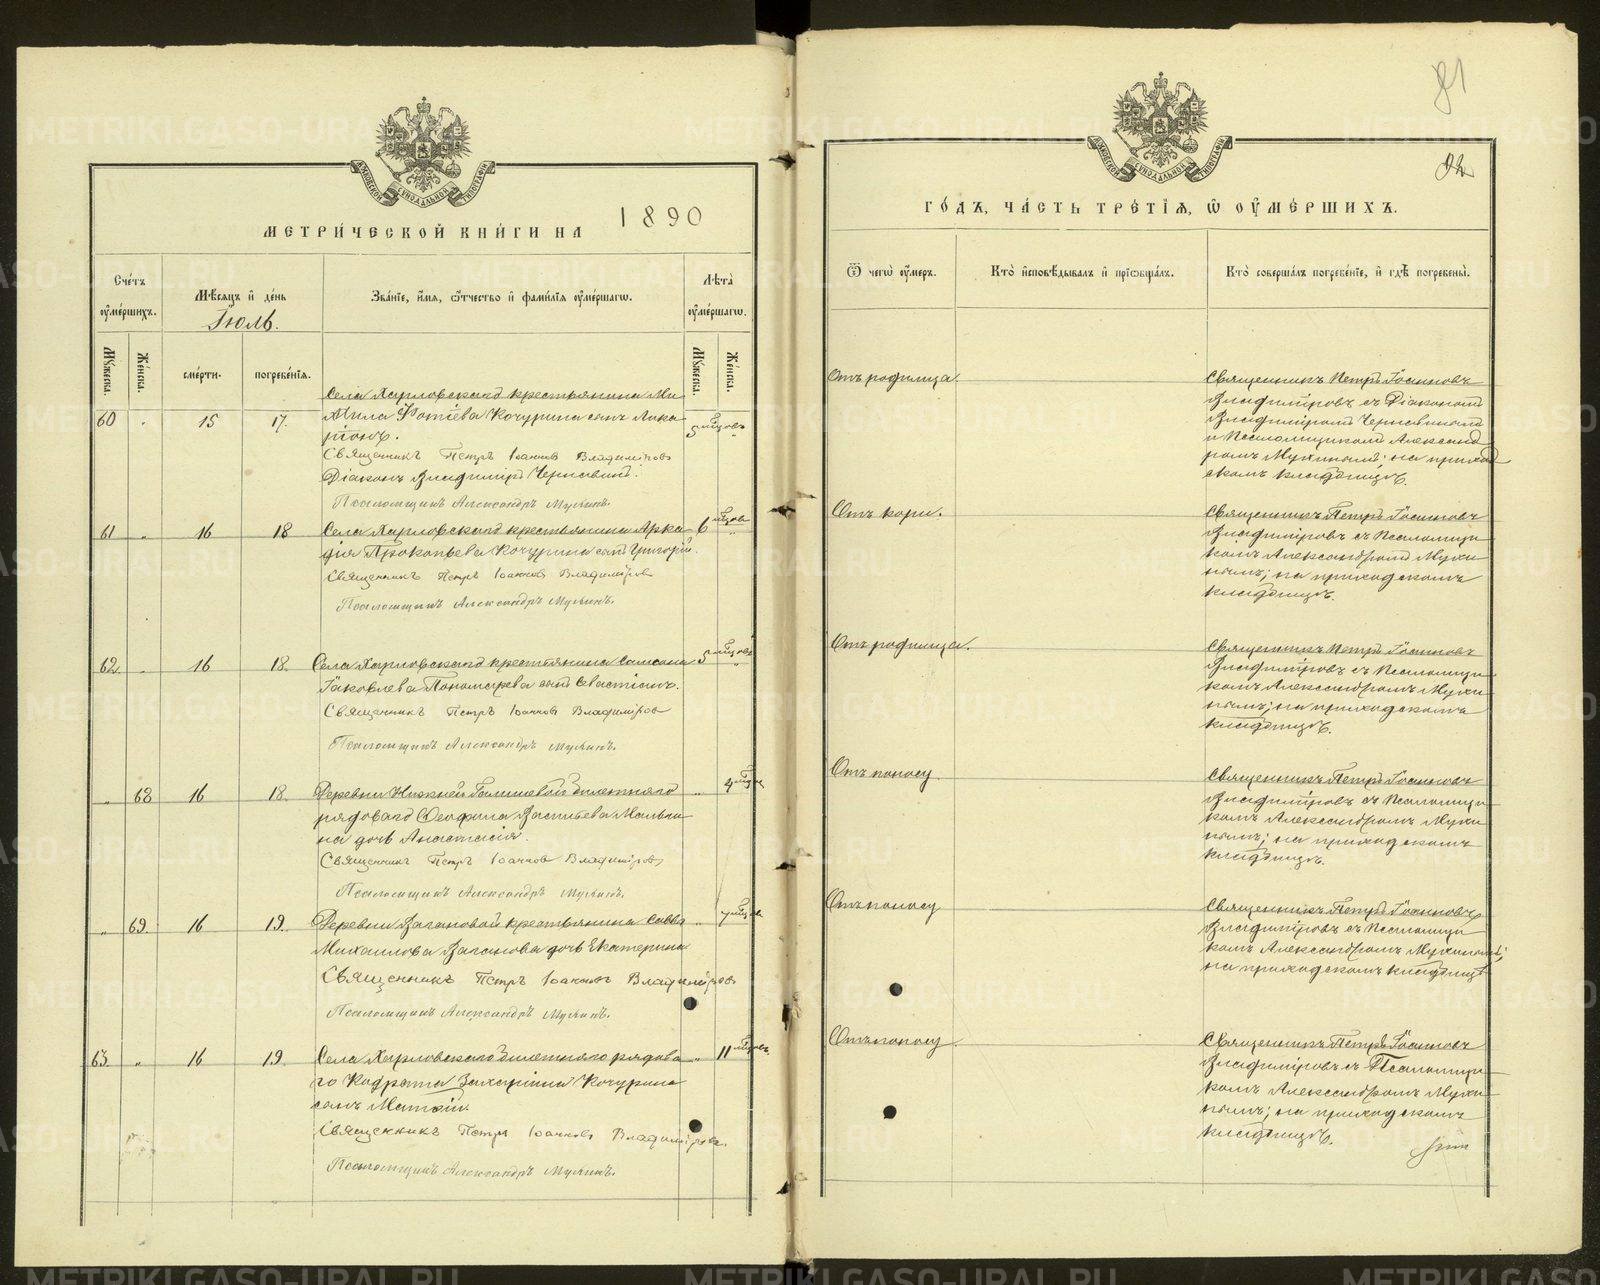 МЕТРИ́ЧЕСКОЙ КНИ́ГИ НА 1890
Счетъ ᲂумершихъ.
Мѣсяцъ и день
Іюль.
Званіе, имя, ѻтчество и фамилія ᲂумершагѡ.
Лѣта ᲂумершагѡ.
Мꙋжеска.
Женска.
смерти.
погребенія.
Мꙋжеска.
Женска.
60 " 15 17.
Села Харловскаго крестьянина Ми
хаила Фотіева Кочурина сынъ Иларіонъ.
5 мѣсцовъ
Священникъ Петръ Іоанновъ Владиміровъ
Діаконъ Владиміръ Чернавинъ.
Псаломщикъ Александръ Мухинъ.
61 " 16 18
Села Харловскаго крестьянина Арка
дія Прокопьева Кочурина сынъ Григорій.
6 мѣсцовъ
Священникъ Петръ Іоанновъ Владиміровъ
Псаломщикъ Александръ Мухинъ.
62 " 16 18.
Села Харловскаго крестьянина Самсона
Іаковлева Пономарева сынъ Севастіанъ.
5 мѣсцовъ
Священникъ Петръ Іоанновъ Владиміровъ
Псаломщикъ Александръ Мухинъ.
" 68 16 18.
Деревни Нижней билетнаго
рядоваго Ѳеофила Васильева
на дочь Анастасія.
Священникъ Петръ Іоанновъ Владиміровъ
Псаломщикъ Александръ Мухинъ.
" 69. 16 19.
Деревни Вагановой крестьянина Саввы
Михаилова Ваганова дочь Екатерина
" 7 мѣсцовъ
Священникъ Петръ Іоанновъ Владиміровъ
Псаломщикъ Александръ Мухинъ.
63. " 16 19.
Села Харловскаго билетнаго рядова
го Кодрата Захаріина Кочурина
сынъ Матѳій.
11 мѣсцовъ.
Священникъ Петръ Іоанновъ Владиміровъ
Псаломщикъ Александръ Мухинъ.
81
92
ГО́ДЪ, ЧА́СТЬ ТРЕ́ТІѦ, Ѿ ОУМЕ́РШИХЪ.
Ѿ чегѡ ᲂумеръ.
Кто исповѣдывалъ и пріѡбщалъ.
Кто совершалъ погребеніе, и гдѣ погребены.
Отъ родимца.
Священникъ Петръ Іоанновъ
Владиміровъ съ Діакономъ
Владиміромъ Чернавинымъ
и Псаломщикомъ Александ
ромъ Мухинымъ; на приход
скомъ кладбищѣ.
Отъ кори.
Священникъ Петръ Іоанновъ
Владиміровъ съ Псаломщи
комъ Александромъ Мухи
нымъ; на приходскомъ
кладбищѣ.
Отъ родимца.
Священникъ Петръ Іоанновъ
Владиміровъ съ Псаломщи
комъ Александромъ Мухи
нымъ; на приходскомъ
кладбищѣ.
Отъ поносу.
Священникъ Петръ Іоанновъ
Владиміровъ съ Псаломщи
комъ Александромъ Мухи
нымъ; на приходскомъ
кладбищѣ.
Отъ поносу
Священникъ Петръ Іоанновъ
Владиміровъ съ Псаломщи
комъ Александромъ Мухинымъ;
на приходскомъ кладбищѣ
Отъ поносу.
Священникъ Петръ Іоанновъ
Владиміровъ съ Псаломщи
комъ Александромъ Мухи
нымъ; на приходскомъ
кладбищѣ.
METRIKI.GASO-URAL.RU